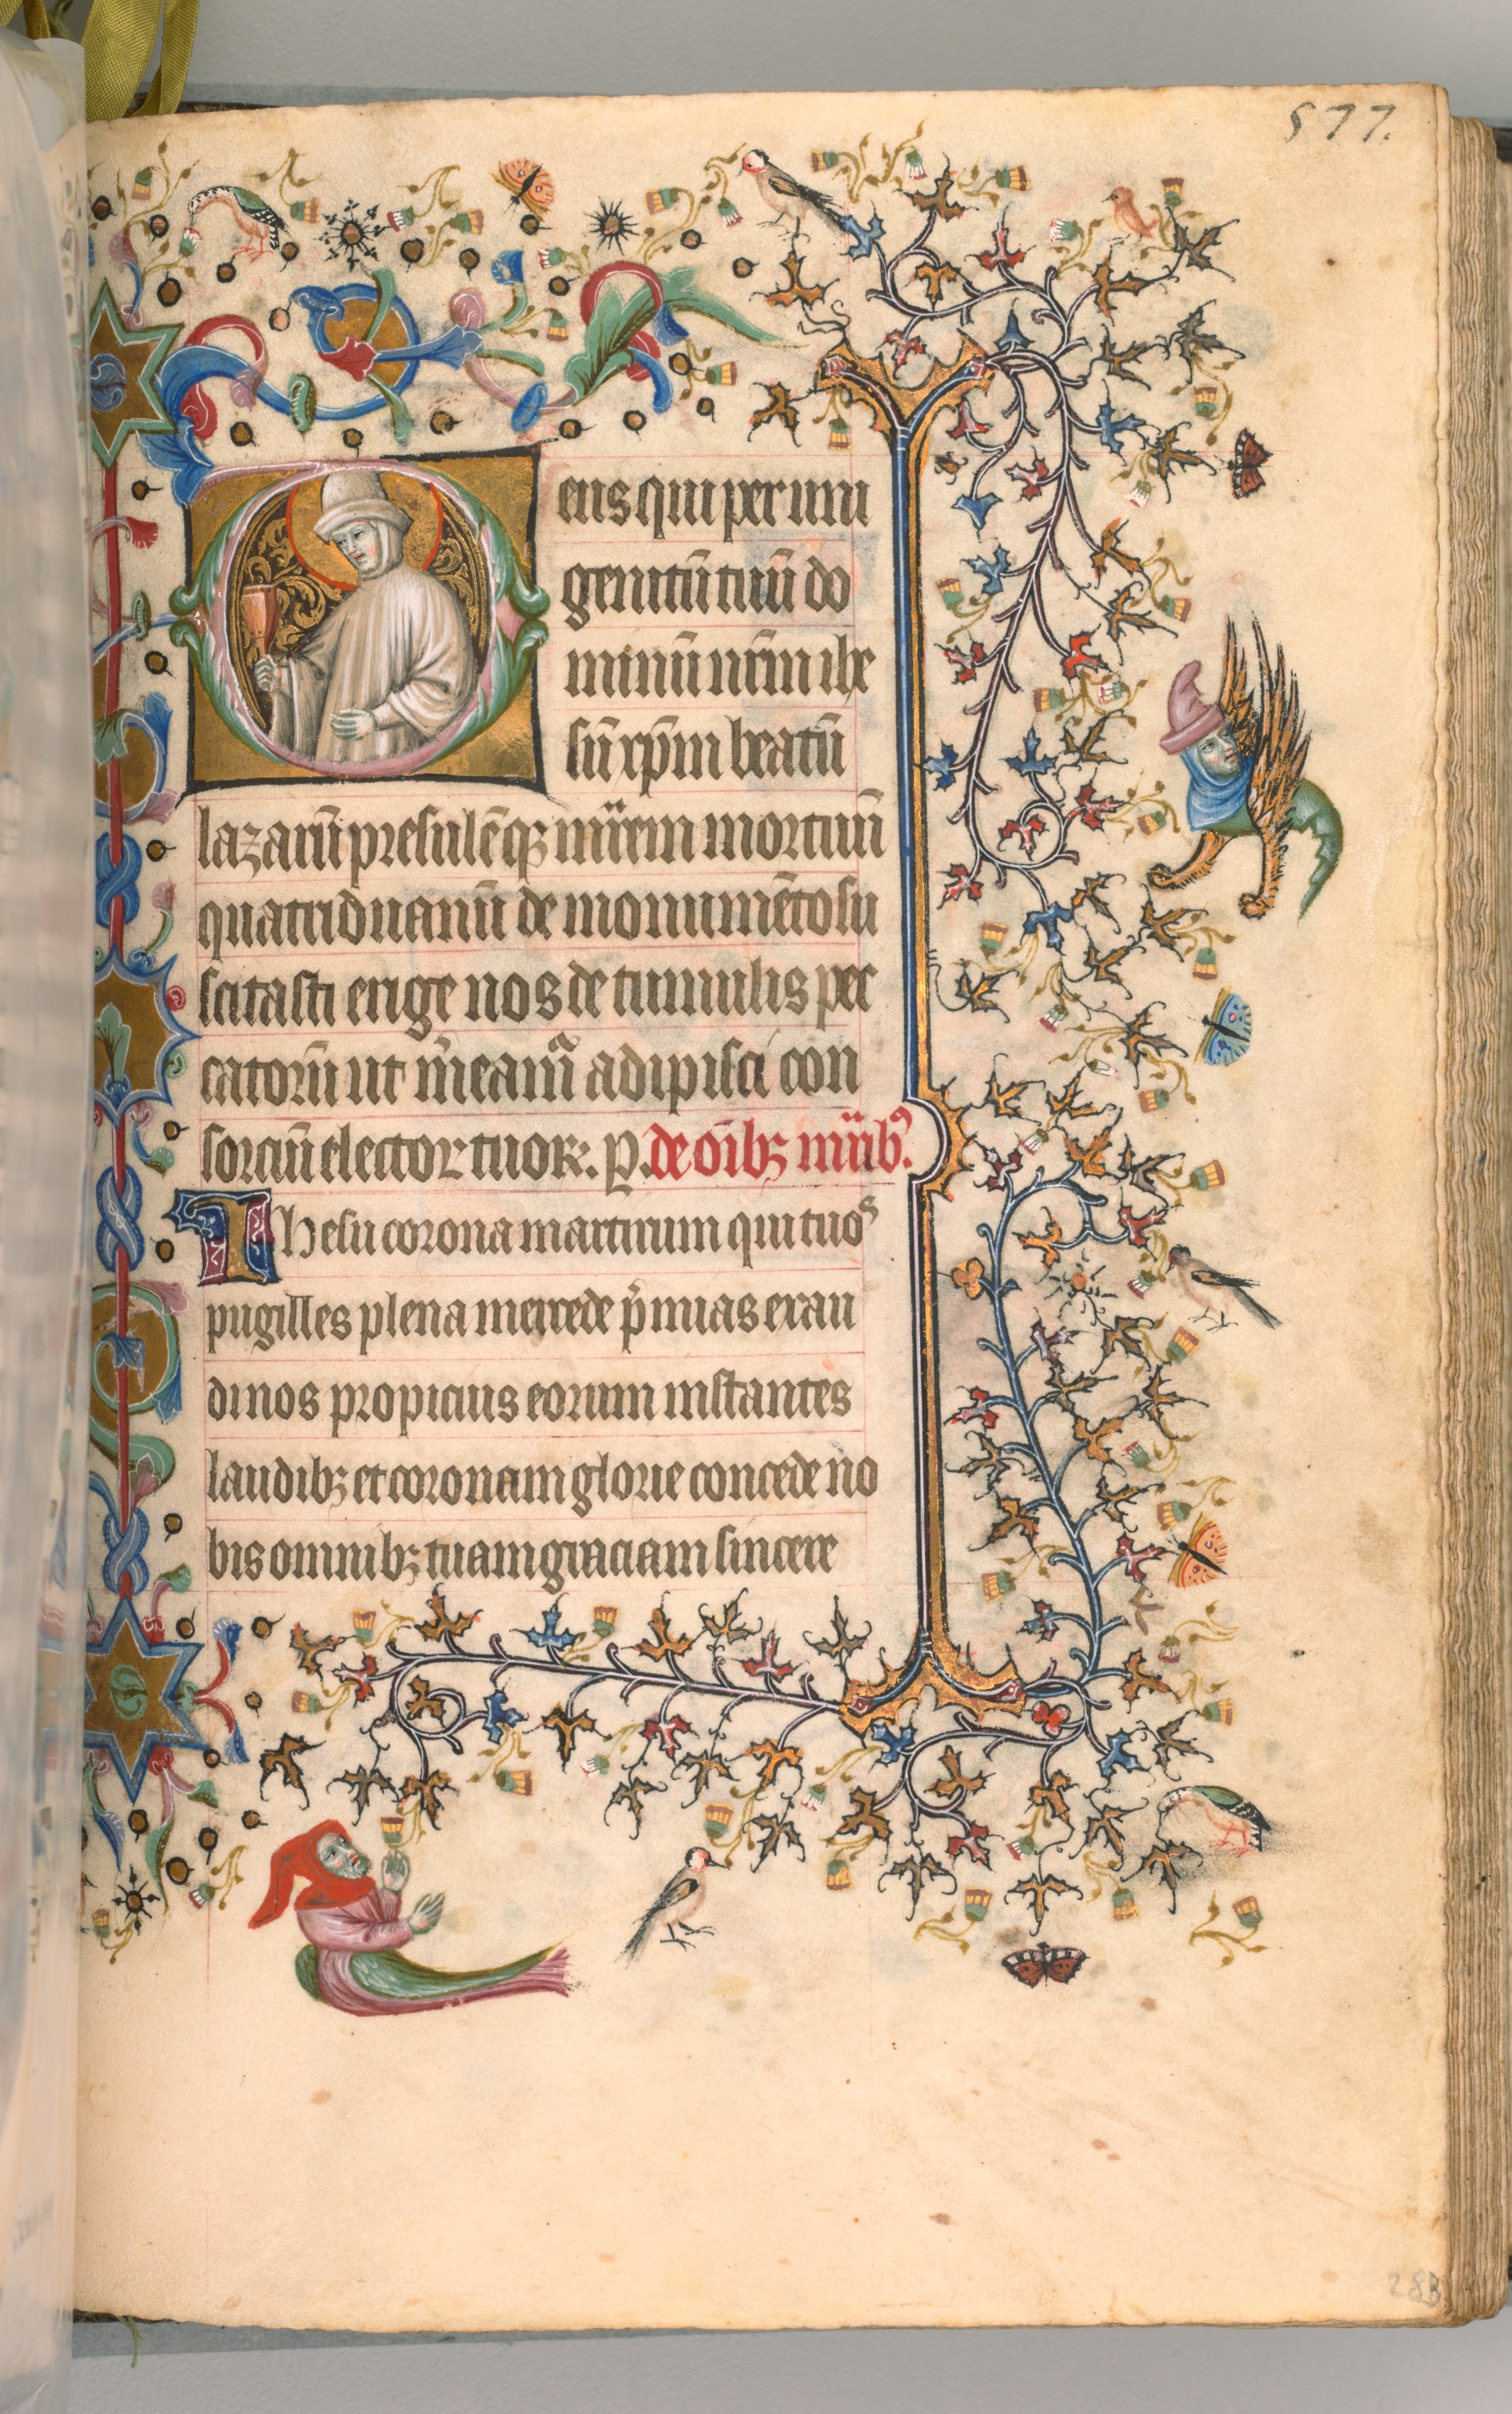 577.
Deus qui per uni
genitū tuū do
minū nr̄m ihe
sū xp̄m beatū
lazarū presulēq; mr̄em mortuū
quatriduanū de monumēto su
scitasti erige nos de tumulis pec
catorū ut in eam adipisci con
sorciū elector tuor. p. de oībꝫ mr̄ibꝰ.
Ihesu corona martirum qui tuos
pugilles plena mercede p̄mias exau
di nos propicius eorum instantes
laudibꝫ et coronam glorie concede no
bis omnibꝫ tuam graciam sincere
283